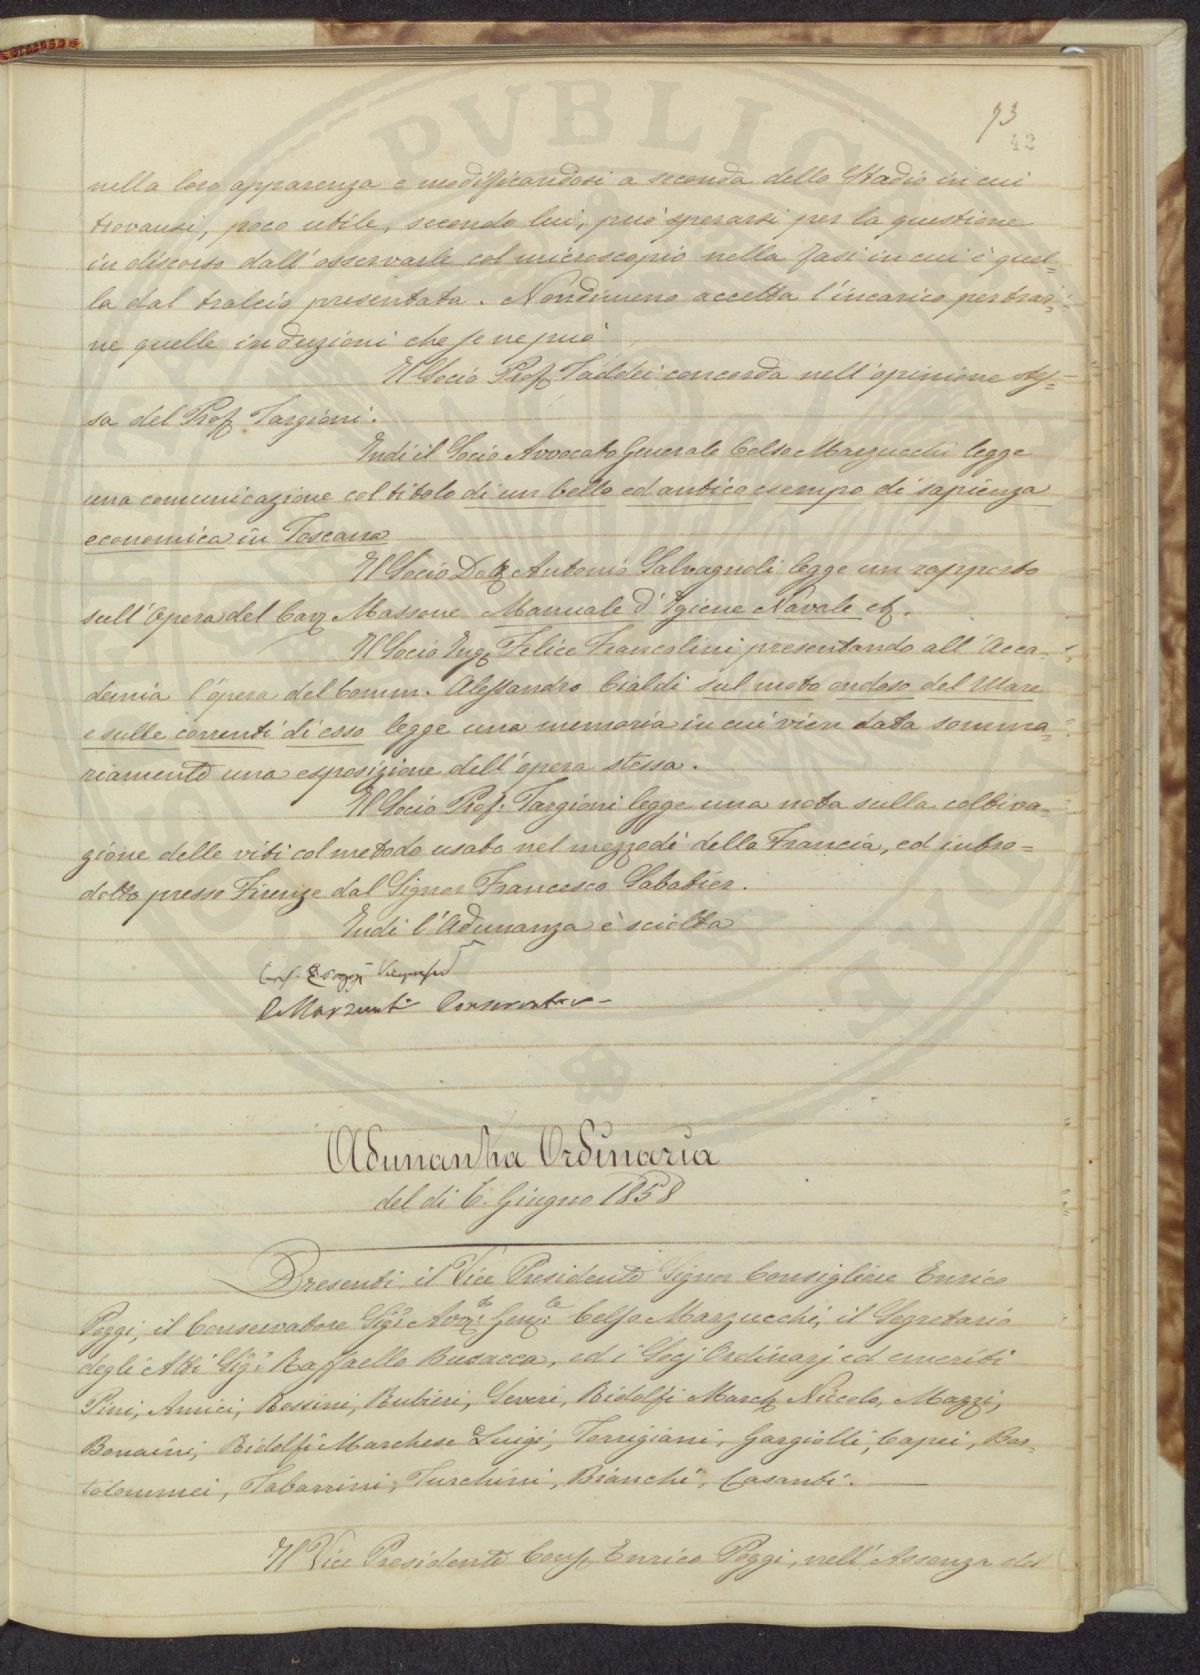 93
42
nella loro apparenza e modificandosi a seconda dello Stadio in cui
trovansi, poco utile, secondo lui, può sperarsi per la questione
in discorso dall'osservarle col microscopio nella fasi in cui è quel=
la del tralcio presentata. Nondimeno accetta l'incarico per trar=
ne quelle induzioni che se ne può
Il Socio Prof. Taddei concorda nell'opinione stes=
sa del Prof. Targioni.
Indi il Socio Avvocato Generale Celso Marzucchi legge
una comunicazione col titolo di un bello ed antico esempio di sapienza
economica in Toscana
Il Socio Dott. Antonio Salvagnoli legge un rapporto
sull'Opera del Cav. Massone Manuale d'Igiene Navale etc.
Il Socio Ing. Felice Francolini presentando all'Acca=
demia l'opera del Comm. Alessandro Cialdi sul moto ondoso del Mare
e sulle correnti di esso legge una memoria in cui vien data somma=
riamente una esposizione dell'opera stessa.
Il Socio Prof. Targioni legge una nota sulla coltiva=
zione delle viti col metodo usato nel mezzodì della Francia, ed intro=
dotto presso Firenze dal Signor Francesco Sabatier.
Indi l'Adunanza è sciolta
Cons. E Poggi Vicepresid
C Marzucchi Conservatore
Adunanza Ordinaria
del dì 6. Giugno 1858
Presenti il Vice Presidente Signor Consigliere Enrico
Poggi, il Conservatore Sigr. Avv. Gen. Celso Marzucchi, il Segretario
degli Atti Sigr. Raffaello Busacca, ed i Socj Ordinarj ed emeriti
Pini, Amici, Rossini, Rubieri, Severi, Ridolfi March. Niccolo, Mazzi,
Bonaini, Ridolfi Marchese Luigi, Torrigiani, Gargiolli, Capei, Bar=
tolommei, Tabarrini, Turchini, Bianchi, Casanti.
Il Vice Presidente Cons. Enrico Poggi, nell'Assenza del